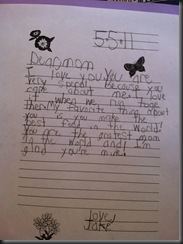 55+11
Dear mom
I love you. You are
very specel because you
care about me. I love
when we run toge
ther. My favorite thing about
you is you make the
best food in the world!
you are the gratest mom
in the world and I'm
glad you're mine!
love,
Jake